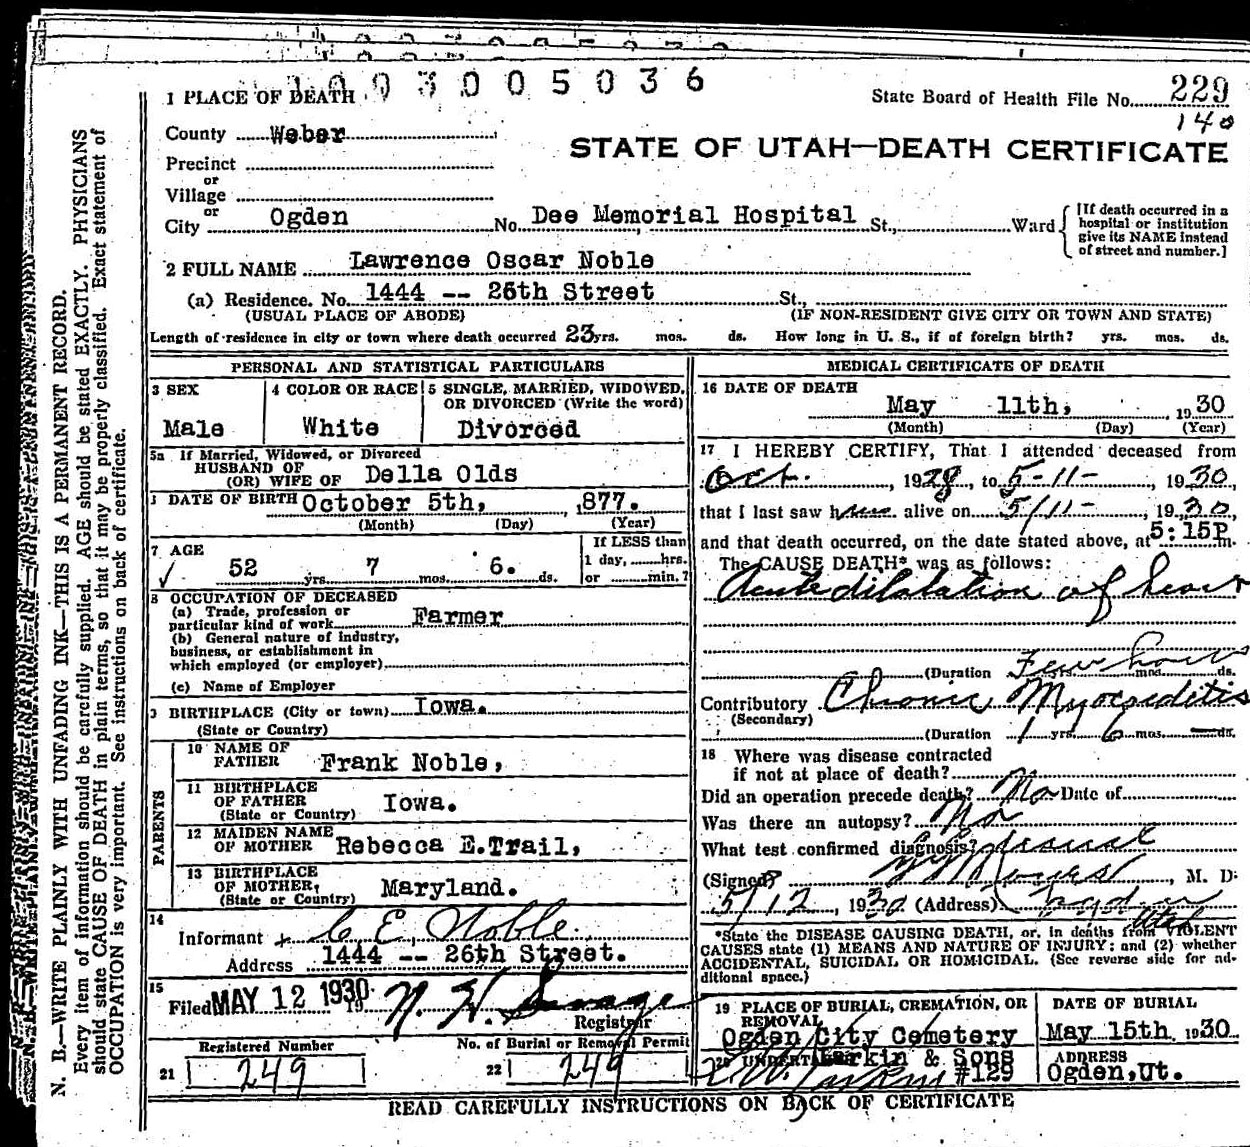 1003005036
1 PLACE OF DEATH
State Board of Health File No. 229
140
County Weber
STATE OF UTAH—DEATH CERTIFICATE
Precinct
or
Village
or
City Ogden No. Dee Memorial Hospital St., Ward
[If death occurred in a
hospital or institution
give its NAME instead
of street and number.]
2 FULL NAME Lawrence Oscar Noble
(a) Residence. No. 1444 -- 26th Street St.,
(USUAL PLACE OF ABODE) (IF NON-RESIDENT GIVE CITY OR TOWN AND STATE)
Length of residence in city or town where death occurred 23 yrs. mos. ds. How long in U. S., if of foreign birth? yrs. mos. ds.
PERSONAL AND STATISTICAL PARTICULARS
3 SEX
Male
4 COLOR OR RACE
White
5 SINGLE, MARRIED, WIDOWED,
OR DIVORCED (Write the word)
Divorced
5a If Married, Widowed, or Divorced
HUSBAND OF
(OR) WIFE OF Della Olds
DATE OF BIRTH October 5th, 1877.
(Month) (Day) (Year)
7 AGE
52 yrs. 7 mos. 6. ds.
If LESS than
1 day, hrs.
or min.?
8 OCCUPATION OF DECEASED
(a) Trade, profession or
particular kind of work Farmer
(b) General nature of industry,
business, or establishment in
which employed (or employer)
(c) Name of Employer
BIRTHPLACE (City or town) Iowa.
(State or Country)
PARENTS
10 NAME OF
FATHER Frank Noble,
11 BIRTHPLACE
OF FATHER Iowa.
(State or Country)
12 MAIDEN NAME
OF MOTHER Rebecca E.Trail,
13 BIRTHPLACE
OF MOTHER, Maryland.
(State or Country)
14
Informant C E, Noble
Address 1444 -- 26th Street.
15
Filed MAY 12 1930 19 N. H. Savage
Registrar
Registered Number
21 249
No. of Burial or Removal Permit
22 249
MEDICAL CERTIFICATE OF DEATH
16 DATE OF DEATH
May 11th, 1930
(Month) (Day) (Year)
17 I HEREBY CERTIFY, That I attended deceased from
Oct. , 1928, to 5-11- , 1930,
that I last saw him alive on 5/11- , 1930,
and that death occurred, on the date stated above, at 5:15P m.
The CAUSE DEATH* was as follows:
Acute dilatation of heart
(Duration Few hours yrs. mos. ds.
Contributory Chronic Myocarditis
(Secondary)
(Duration 1 yrs. 6 mos. — ds.
18 Where was disease contracted
if not at place of death?
Did an operation precede death? No Date of
Was there an autopsy? No
What test confirmed diagnosis?
(Signed) , M. D.
5/12 , 1930 (Address) Ogden
Utah
*State the DISEASE CAUSING DEATH, or, in deaths from VIOLENT
CAUSES state (1) MEANS AND NATURE OF INJURY; and (2) whether
ACCIDENTAL, SUICIDAL OR HOMICIDAL. (See reverse side for ad-
ditional space.)
19 PLACE OF BURIAL, CREMATION, OR
REMOVAL
Ogden City Cemetery
DATE OF BURIAL
May 15th 1930
20 UNDERTAKER Larkin & Sons
#129
ADDRESS
Ogden,Ut.
READ CAREFULLY INSTRUCTIONS ON BACK OF CERTIFICATE
N. B.—WRITE PLAINLY WITH UNFADING INK—THIS IS A PERMANENT RECORD.
Every item of information should be carefully supplied. AGE should be stated EXACTLY. PHYSICIANS
should state CAUSE OF DEATH in plain terms, so that it may be properly classified. Exact statement of
OCCUPATION is very important. See instructions on back of certificate.